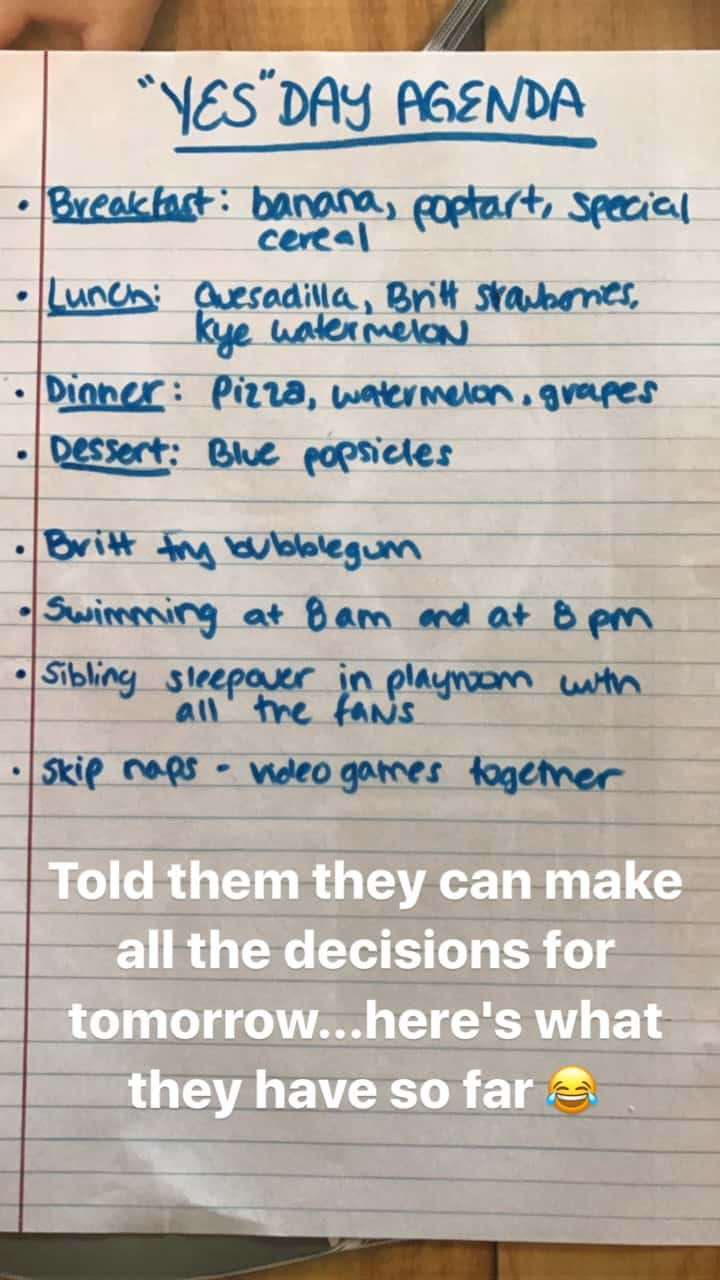 "YES" DAY AGENDA
• Breakfast: banana, poptart, special
cereal
• Lunch: Quesadilla, Britt strawberries,
kye watermelon
• Dinner: Pizza, watermelon, grapes
• Dessert: Blue popsicles
• Britt try bubblegum
• Swimming at 8am and at 8 pm
• Sibling sleepover in playroom with
all the fans
• Skip naps - video games together
Told them they can make
all the decisions for
tomorrow...here's what
they have so far 😂